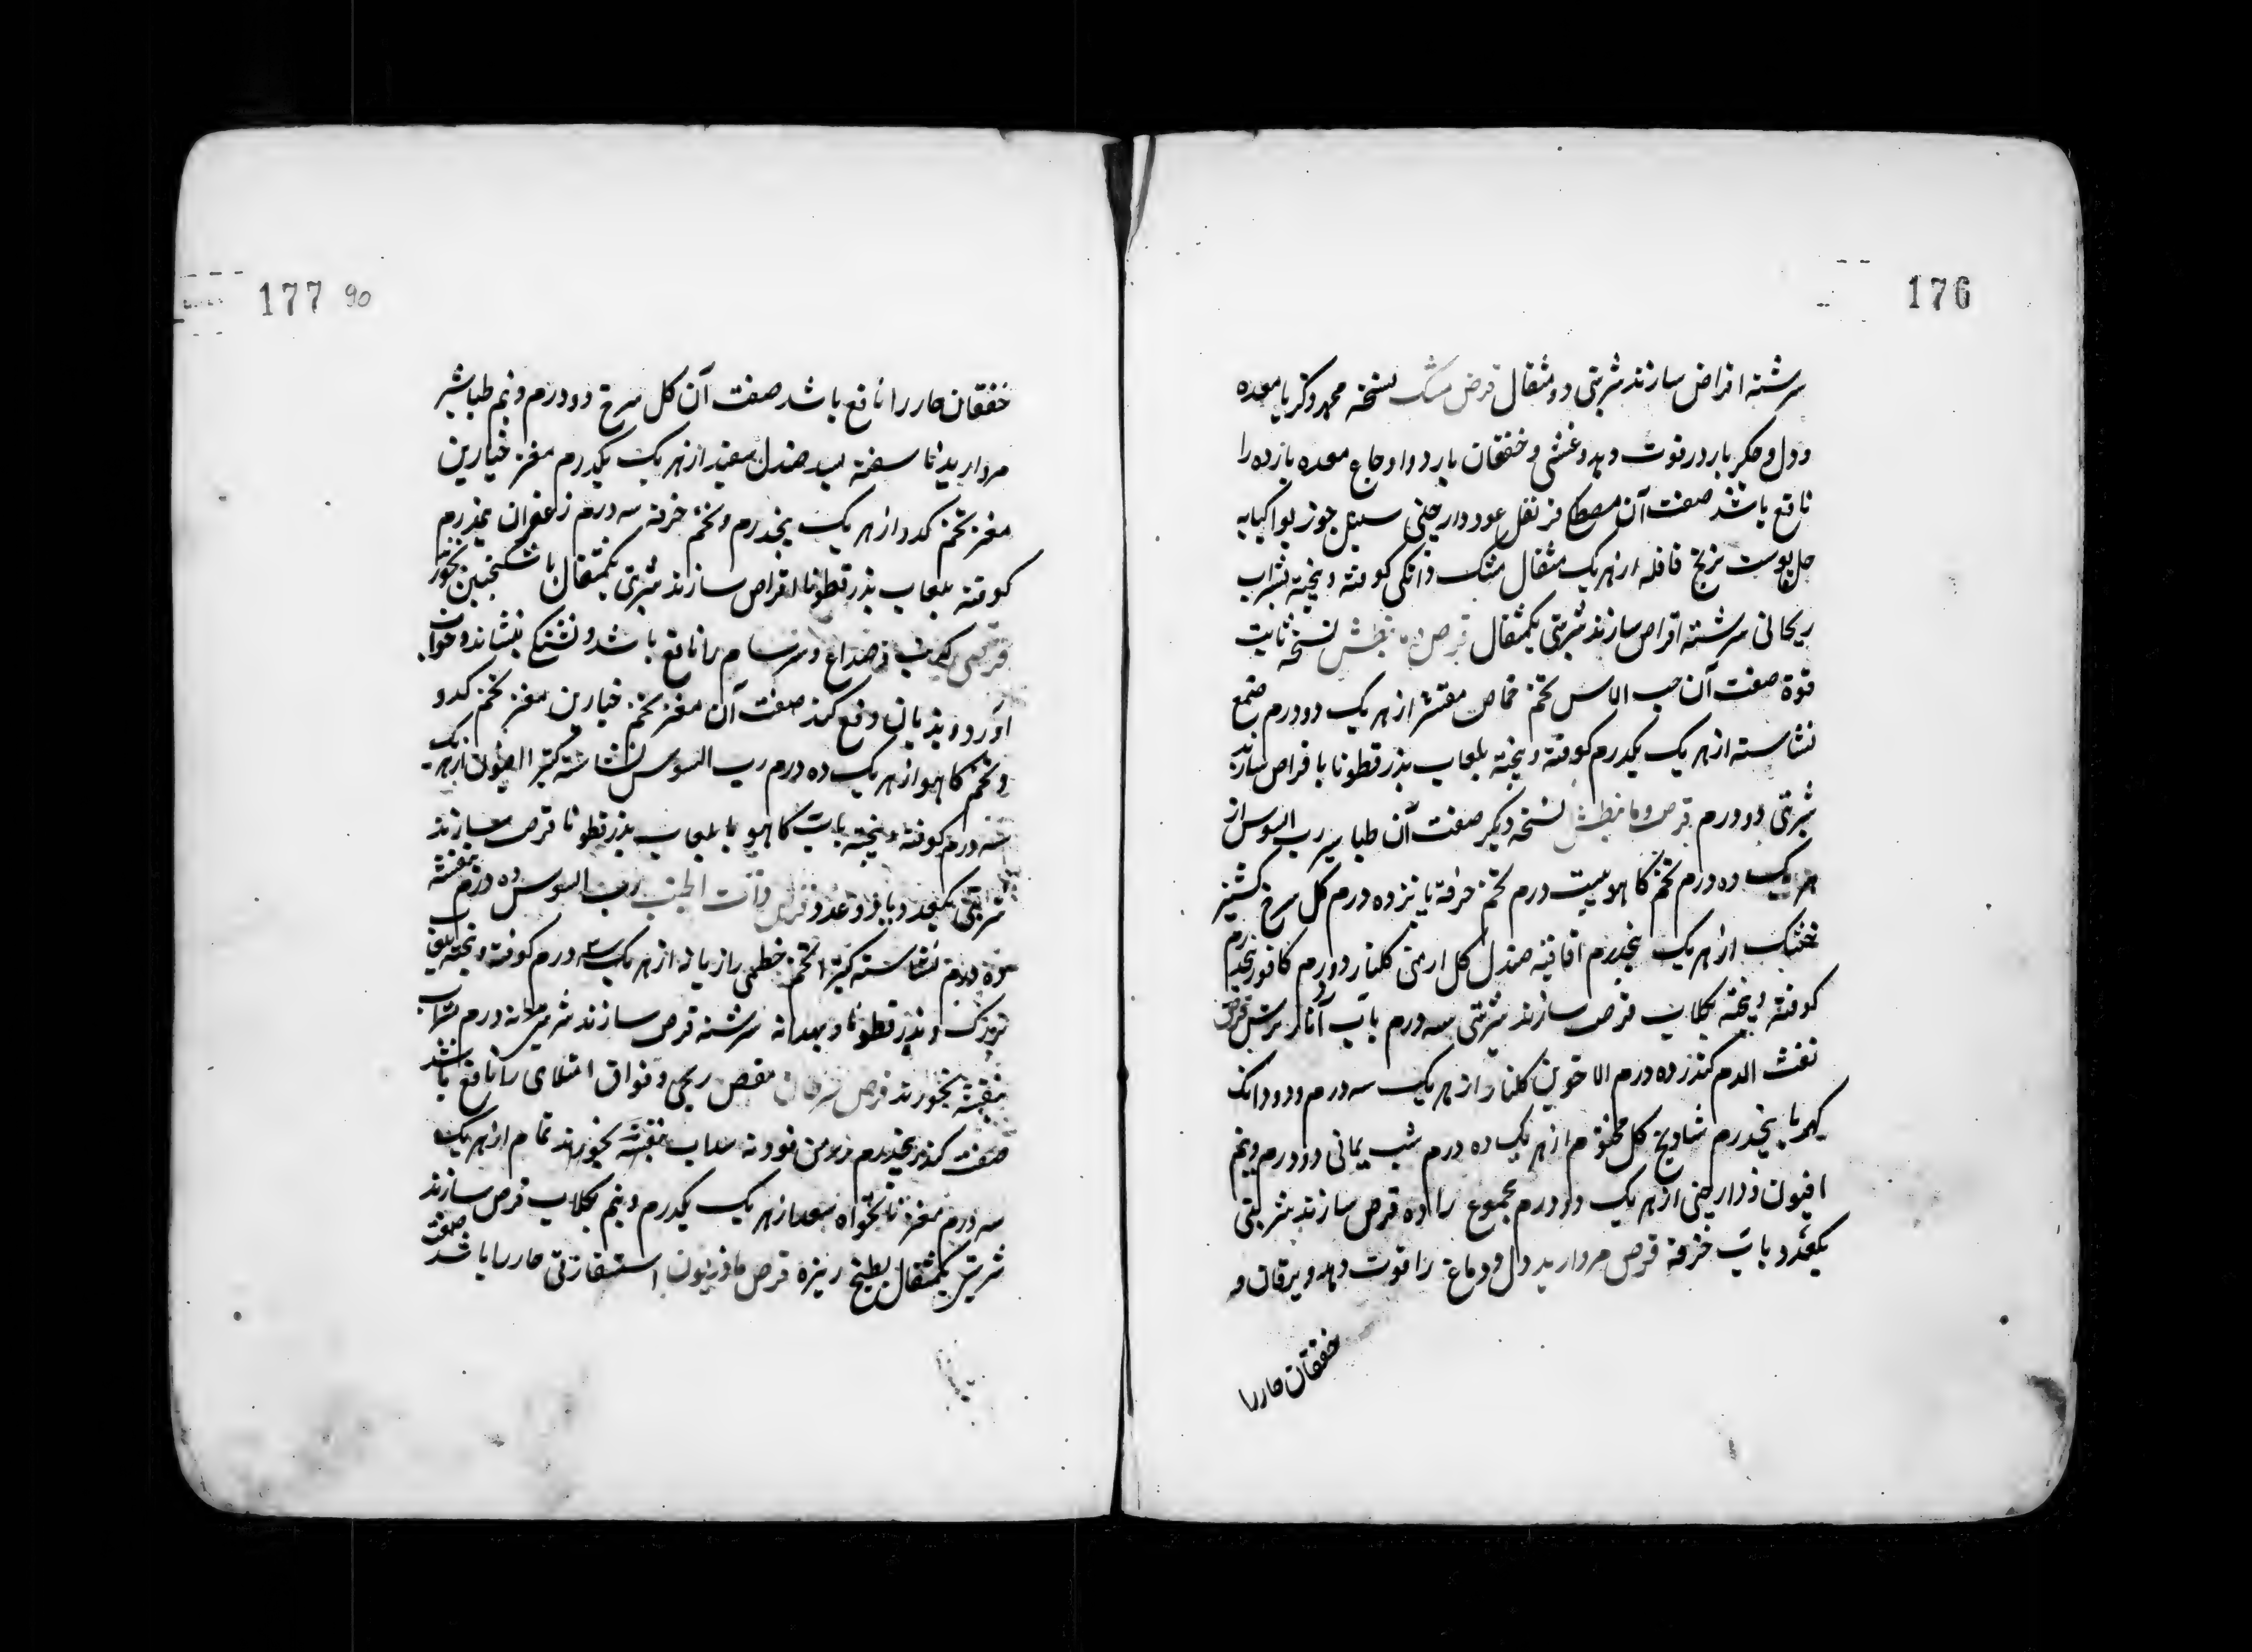 176
سرشته اقراص سازند شربتی دو مثقال قرص مشک نسخه محمد زکریا معده
و دل و جکر بارد را قوت دهد و غشی و خفقان بارد و اوجاع معده بارده را
نافع باشد صفت آن مصطکی قرنفل عود دارچینی سنبل جوز بوا کبابه
پوست ترنج قاقله از هر یک مثقال مشک دانکی کوفته و بیخته بشراب
ریحانی سرشته اقراص سازند شربتی یکمثقال قرص نسخه ثابت
قوة صفت آن حب الاس تخم حماض مقشر از هر یک دو درم صمغ
نشاسته از هر یک یکدرم کوفته و بیخته بلعاب بذرقطونا اقراص سازند
شربتی دو درم قرص نسخه دیکر صفت آن طباشیر رب السوس از
هر یک ده درم تخم کاهو بیست درم تخم خرفه پانزده درم کل سرخ کشنیز
خشک از هر یک پنجدرم اقاقیه صندل کل ارمنی کلنار دو درم کافور نیم درم
کوفته و بیخته بکلاب قرص سازند شربتی سه درم بآب انار ترش قرص
نفث الدم کندر ده درم دم الاخوین کلنار از هر یک سه درم و دو دانک
کهربا پنجدرم شادنج کل مختوم از هر یک ده درم شب یمانی دو درم و نیم
افیون و دارچینی از هر یک دو درم مجموع را ده قرص سازند شربتی
یکعدد بآب خرفه قرص مروارید دل و دماغ را قوت دهد و یرقان و
خفقان حار را
177 90
خفقان حار را نافع باشد صفت آن کل سرخ دو درم و نیم طباشیر
مروارید ناسفته بسد صندل سفید از هر یک یکدرم مغز خیارین
مغز تخم کدو از هر یک پنجدرم و تخم خرفه سه درم زعفران نیم درم
کوفته بلعاب بذرقطونا اقراص سازند شربتی یکمثقال با سکنجبین بخورند
قرصی که تب و صداع و سرسام را نافع باشد و تشنکی بنشاند و خواب
آورد و هذیان دفع کند صفت آن مغز تخم خیارین مغز تخم کدو
و تخم کاهو از هر یک ده درم رب السوس نشاسته کتیرا افیون از هر یک
سه درم کوفته و بیخته بآب کاهو یا بلعاب بذرقطونا قرص سازند
شربتی یکعدد یا دو عدد قرص ذات الجنب رب السوس ده درم بنفشه
ده درم نشاسته کتیرا تخم خطمی رازیانه از هر یک سه درم کوفته و بیخته بلعاب
و بذرقطونا و بهدانه سرشته قرص سازند شربتی سه درم بشراب
بنفشه بخورند قرص مغص ریحی و فواق امتلای را نافع باشد
صفت کندر پنجدرم سداب بنفشه از هر یک
سه درم مغز نانخواه سعد از هر یک یکدرم و نیم بکلاب قرص سازند
شربتی یکمثقال بطبیخ زیره قرص مازریون استسقاء زقی حار را باشد صفت